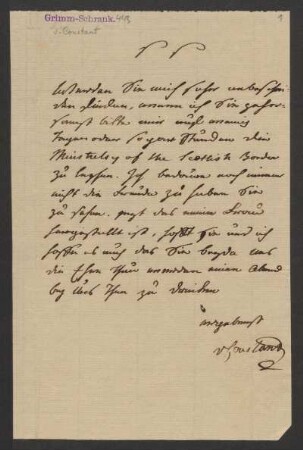 Grimm-Schrank.
v. Constant
P P
Werden Sie mich sehr unbeschei
den finden, wenn ich Sie gehor
samst bitte mir auf wenige
Tage oder sogar Stunden die
Minstrelsy of the Scottish Border
zu leihen. Ich bedaure noch immer
nicht die Freude zu haben Sie
zu sehen. jezt das meine Frau
hergestellt ist, hofft sie und ich
hoffe es auch das Sie beyde uns
die Ehre thun werden einen Abend
bey uns Thee zu trinken
ergebenst